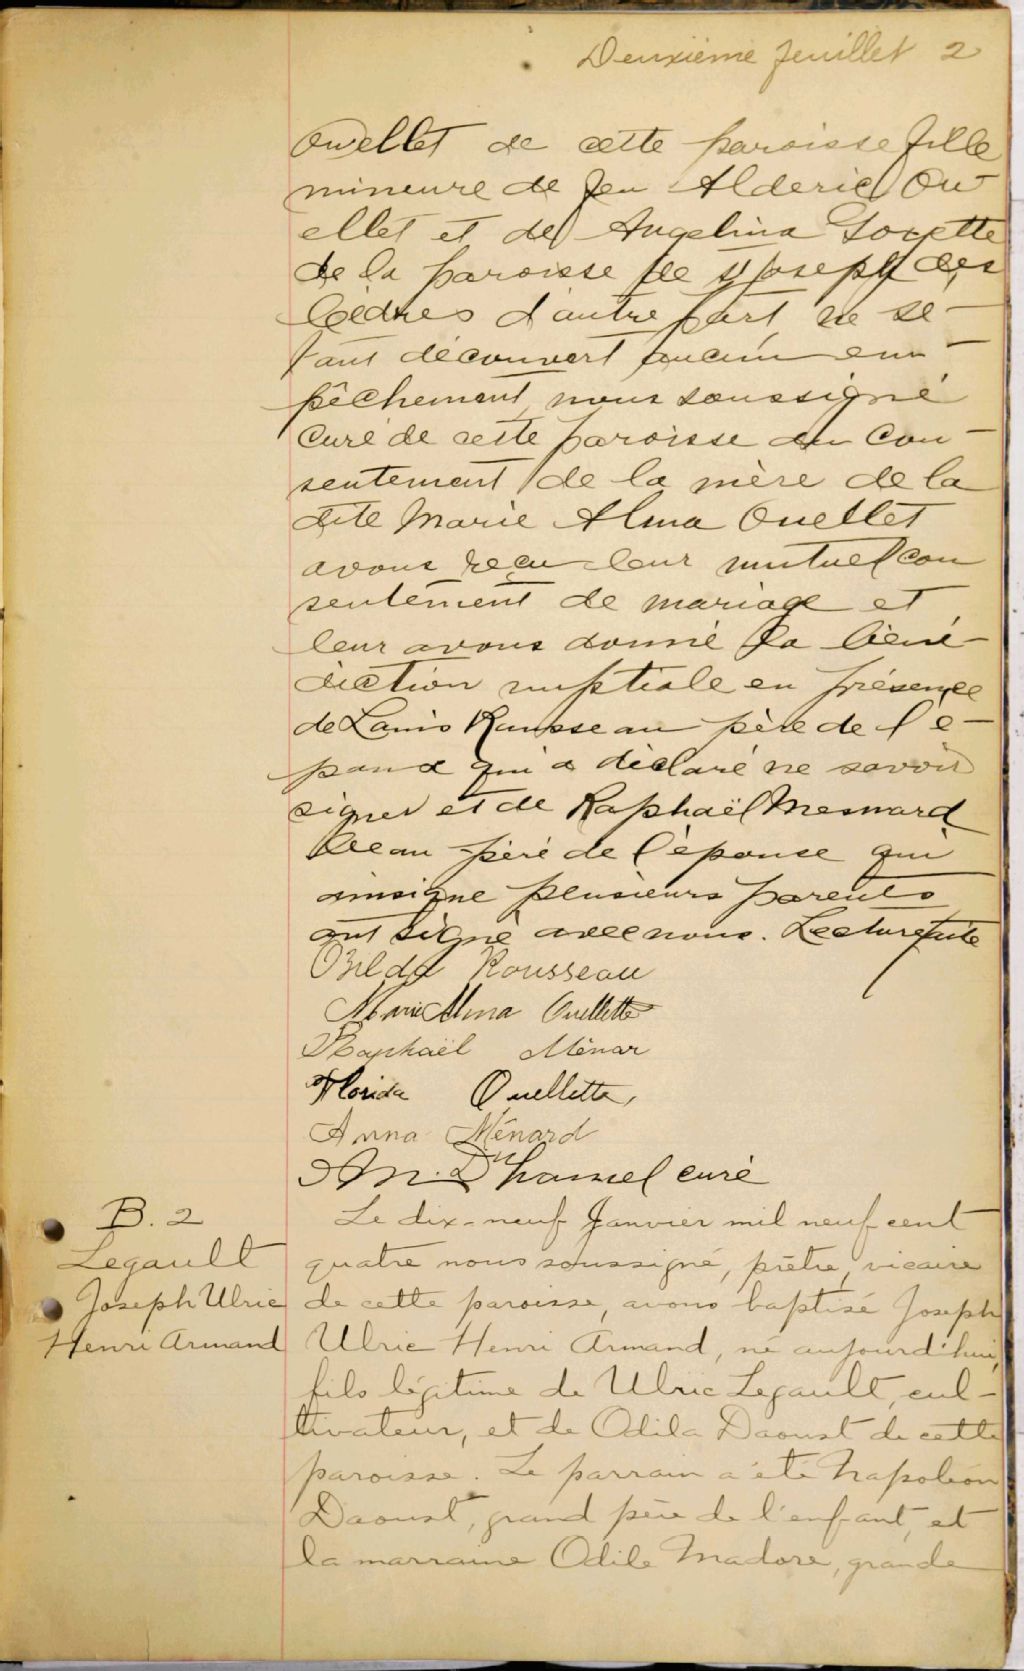 Deuxième feuillet 2
Ouellet de cette paroisse fille
mineure de feu Alderic Ou-
ellet et de Angelina Goyette
de la paroisse de St Joseph des
Cèdres d'autre part, ne se-
tant découvert aucun em-
pêchement, nous soussigné
curé de cette paroisse du con-
sentement de la mère de la
dite Marie Alma Ouellet
avons reçu leur mutuel con
sentement de mariage et
leur avons donné la béné-
diction nuptiale en présence
de Louis Rousseau père de l'é-
poux qui a déclaré ne savoir
signer et de Raphaël Mesnard
beau-père de l'épouse qui
a signé plusieurs parents
ont signé avec nous. Lecture faite
Ozilda Rousseau
Marie Alma Ouellette
Raphaël Ménar
Florida Ouellette,
Anna Ménard
M. Duhamel curé
B. 2
Legault
Joseph Ulric
Henri Armand
Le dix-neuf Janvier mil neuf cent
quatre nous soussigné, prêtre, vicaire
de cette paroisse, avons baptisé Joseph
Ulric Henri Armand, né aujourd'hui,
fils légitime de Ulric Legault, cul-
tivateur, et de Odila Daoust de cette
paroisse. Le parrain a été Napoléon
Daoust, grand père de l'enfant, et
la marraine Odile Madore, grande